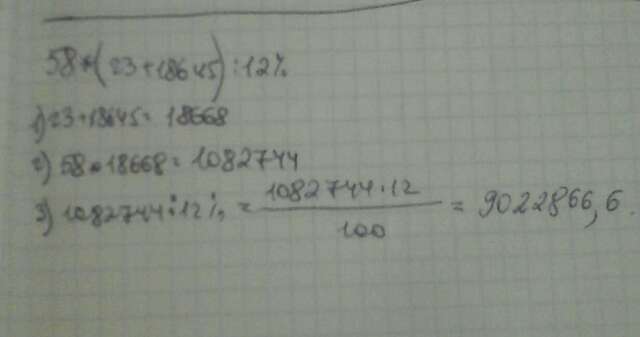 58*(23+18645):12%
1) 23+18645= 18668
2) 58*18668= 1082744
3) 1082744:12% = 1082744·12 / 100 = 9022866,6.